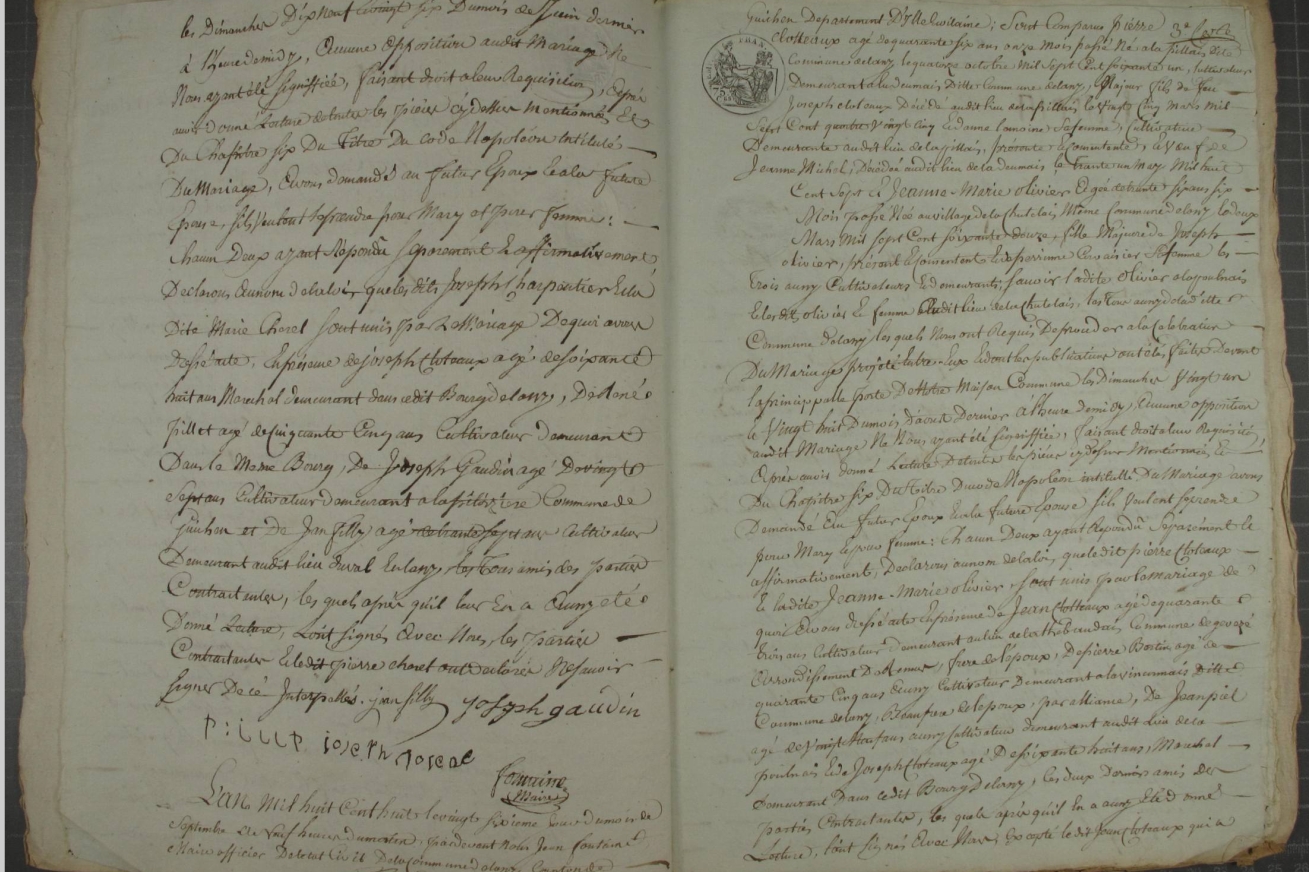 les Dimanches Dix Neuf et vingt six Du mois de Juin dernier
à l'heure de midy, Aucune opposition audit Mariage Ne
Nous ayant été signiffiée, faisant droit a leur Requisition, Après
avoir donné Lecture de toutes les pieces cy dessus Mentionnés Et
Du Chapitre six Du Titre Du Code Napoléon Intitulés
Du Mariage, avons demandé au futur Epoux Et a la future
Epouse, s'ils veulent se prendre pour Mary et pour femme:
chacun Deux ayant Répondu séparement Et affirmativement
Declarons au nom de la loi que les dits Joseph Charpentier Et la
Dite Marie Chorel sont unis par le Mariage De quoi avons
dressé acte, En présence de joseph Cloteaux agé de soixante
huit ans Marechal demeurant dans cedit Bourg de lany,
pillet agé de Cinquante Cinq ans Cultivateur demeurant
Dans le Meme Bourg, De Joseph Gaudin agé De vingt
Sept ans Cultivateur demeurant a la Commune de
Guichen et De Jan filly agé de trente sept ans Cultivateur
Demeurant audit lieu du val En lany, tous amis des parties
Contractantes, les quels après qu'il leur En a Aussy eté
Donné Lecture, L'ont signés Avec Nous, les parties
Contractantes Et ledit pierre chorel ont declarés Ne savoir
signer De ce Interpellés. jan filly joseph gaudin
P: LLLP ioseph
fontaine
Maire
L'an Mil huit Cent huit le vingt sixieme jour du mois de
Septembre aux Neuf heures du matin, par devant Nous Jean fontaine
Maire officier De letat Civil De la Commune de lany, Canton de
Guichen Departement D'Ille Et vilaine; Sont Comparus pierre
Clotteaux agé de quarante six ans onze Mois passé Né a la pillais Dite
Commune de lany le quatorze octobre Mil Sept Cent soixante un, Cultivateur
Demeurant a la deumais Dite Commune de lany, Majeur fils de feu
Joseph cloteaux Décédé audit lieu de la pillais, le vingt Cinq Mars Mil
Sept Cent quatre vingt Cinq Et d'anne lemoine sa femme, Cultivatrice
Demeurante audit lieu de la pillais, présente Et Consentente; Et veuf De
Jeanne Michel, Décédée audit lieu de la deumais le trente un May Mil huit
Cent Sept Et Jeanne-Marie olivier Et agée de trente six ans six
Mois passé Née au village de la chatelais Même Commune de lany le deux
Mars Mil Sept Cent Soixante douze, fille Majeure de Joseph
olivier, présent Et Consentent Et de perrine sa femme les
trois aussy Cultivateurs Et demeurants, savoir ladite olivier
Et lesdits olivier Et femme audit lieu de la chatelais, les tous aussy de la dite
Commune de lany les quels Nous ont Requis De proceder a la Celebration
Du Mariage projeté Entre Eux Et dont les publications ont étés faites Devant
la principalle porte De Notre Maison Commune les Dimanches vingt un
Et vingt huit Du mois D'aoust Dernier à l'heure de midy, Aucune opposition
audit Mariage Ne Nous ayant été signiffiée, faisant droit a leur Requisition,
Après avoir donné Lecture De toutes les pieces cy dessus Mentionnés, Et
Du Chapitre six Du titre Du Code Napoleon intitullé Du Mariage avons
Demandé Au futur Epoux Et a la future Epouse s'ils veulent se prendre
pour Mary Et pour femme: chacun Deux ayant Repondu Separement Et
affirmativement, Declarons au nom de la loi, que ledit pierre Cloteaux
Et ladite Jeanne-Marie olivier sont unis par le mariage de
quoi Avons dressé acte En présence de Jean Clotteaux agé de quarante
trois ans Cultivateur demeurant au lieu de Commune de geveze
Arrondissement De Rennes, frere de l'epoux, De pierre Bertin agé de
quarante Cinq ans Aussy Cultivateur Demeurant a la Dite
Commune de lany, Beaufrere de lepoux, par alliance, De Jean piel
agé de vingt Neuf ans aussy Cultivateur demeurant audit lieu de la
Et de Joseph Cloteaux agé De soixante huit ans, Marechal
demeurant Dans ce dit Bourg De lany, les deux Derniers amis Des
parties Contractantes, les quels après qu'il En a aussy Eté donné
Lecture, L'ont signés Avec Nous, Excepté le dit jean Cloteaux qui a